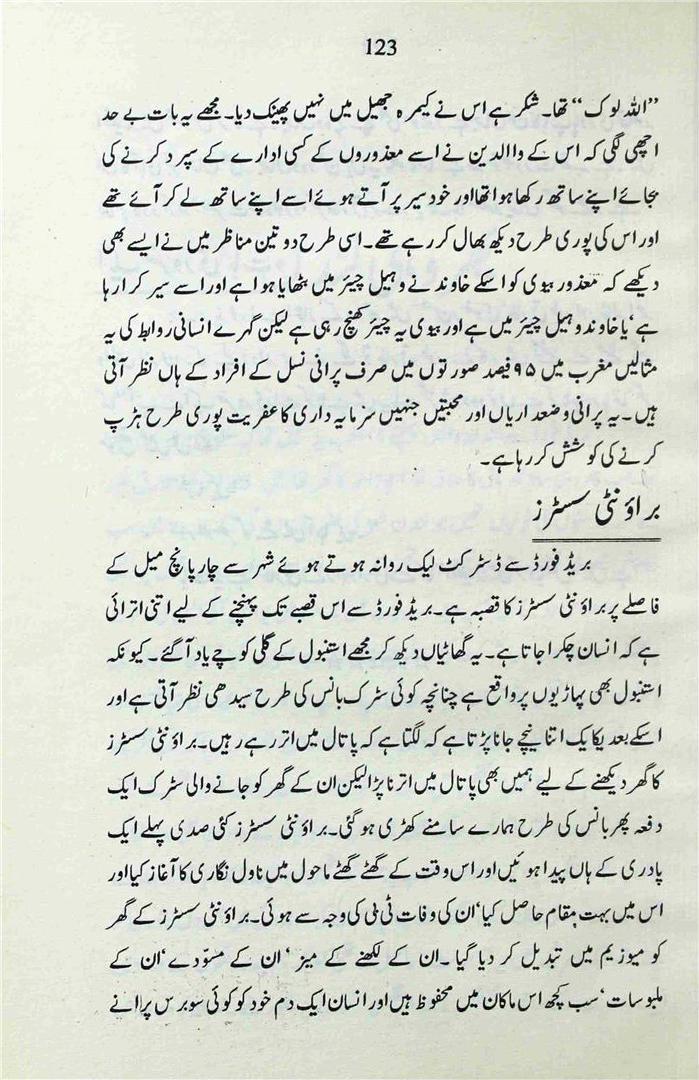 123
”اللہ لوک“ تھا۔ شکر ہے اس نے کیمرہ جھیل میں نہیں پھینک دیا۔ مجھے یہ بات بے حد
اچھی لگی کہ اس کے واالدین نے اسے معذوروں کے کسی ادارے کے سپرد کرنے کی
بجائے اپنے ساتھ رکھا ہوا تھا اور خود سیر پر آتے ہوئے اسے اپنے ساتھ لے کر آئے تھے
اور اس کی پوری طرح دیکھ بھال کر رہے تھے۔ اسی طرح دو تین مناظر میں نے ایسے بھی
دیکھے کہ معذور بیوی کو اسکے خاوند نے وہیل چیئر میں بٹھایا ہوا ہے اور اسے سیر کرا رہا
ہے‘ یا خاوند وہیل چیئر میں ہے اور بیوی یہ چیئر کھینچ رہی ہے لیکن گہرے انسانی روابط کی یہ
مثالیں مغرب میں ۹۵ فیصد صورتوں میں صرف پرانی نسل کے افراد کے ہاں نظر آتی
ہیں۔ یہ پرانی وضعداریاں اور محبتیں جنہیں سرمایہ داری کا عفریت پوری طرح ہڑپ
کرنے کی کوشش کر رہا ہے۔
براؤنٹی سسٹرز
بریڈ فورڈ سے ڈسٹرکٹ لیک روانہ ہوتے ہوئے شہر سے چار پانچ میل کے
فاصلے پر براؤنٹی سسٹرز کا قصبہ ہے۔ بریڈ فورڈ سے اس قصبے تک پہنچنے کے لیے اتنی اترائی
ہے کہ انسان چکرا جاتا ہے۔ یہ گھاٹیاں دیکھ کر مجھے استنبول کے گلی کوچے یاد آ گئے۔ کیونکہ
استنبول بھی پہاڑیوں پر واقع ہے چنانچہ کوئی سڑک بانس کی طرح سیدھی نظر آتی ہے اور
اسکے بعد یکایک اتنا نیچے جانا پڑتا ہے کہ لگتا ہے کہ پاتال میں اتر رہے ہیں۔ براؤنٹی سسٹرز
کا گھر دیکھنے کے لیے ہمیں بھی پاتال میں اترنا پڑا لیکن ان کے گھر کو جانے والی سڑک ایک
دفعہ پھر بانس کی طرح ہمارے سامنے کھڑی ہو گئی۔ براؤنٹی سسٹرز کئی صدی پہلے ایک
پادری کے ہاں پیدا ہوئیں اور اس وقت کے گھٹے گھٹے ماحول میں ناول نگاری کا آغاز کیا اور
اس میں بہت مقام حاصل کیا‘ ان کی وفات ٹی بی کی وجہ سے ہوئی۔ براؤنٹی سسٹرز کے گھر
کو میوزیم میں تبدیل کر دیا گیا۔ ان کے لکھنے کے میز ‘ ان کے مسوّدے‘ ان کے
ملبوسات‘ سب کچھ اس ماکان میں محفوظ ہیں اور انسان ایک دم خود کو کوئی سو برس پرانے